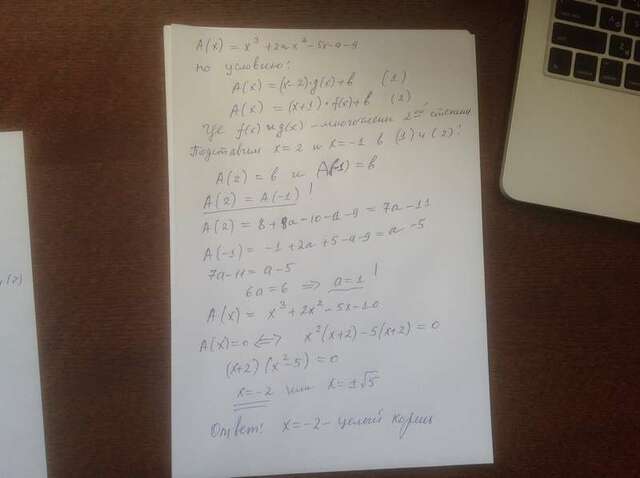 A(x) = x³ + 2ax² - 5x - a - 9
По условию:
A(x) = (x-2)·g(x) + b (1)
A(x) = (x+1)·f(x) + b (2)
где f(x) и g(x) - многочлены 2ой степени
Подставим x = 2 и x = -1 в (1) и (2):
A(2) = b и A(-1) = b
A(2) = A(-1) !
A(2) = 8 + 8a - 10 - a - 9 = 7a - 11
A(-1) = -1 + 2a + 5 - a - 9 = a - 5
7a - 11 = a - 5
6a = 6 => a = 1 !
A(x) = x³ + 2x² - 5x - 10
A(x) = 0 <=> x²(x+2) - 5(x+2) = 0
(x+2)(x²-5) = 0
x = -2 или x = ±√5
Ответ: x = -2 - целый корень